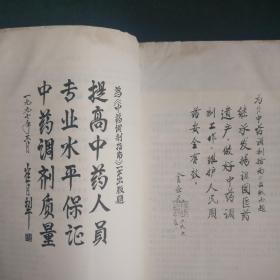 为《中药调剂指南》一书出版题
提高中药人員
专业水平保证
中药调剂质量
一九九〇年
为《中药调剂指南》出版题
继承发扬祖国医药
遗产，做好中药调
剂工作，维护人民用
药安全有效